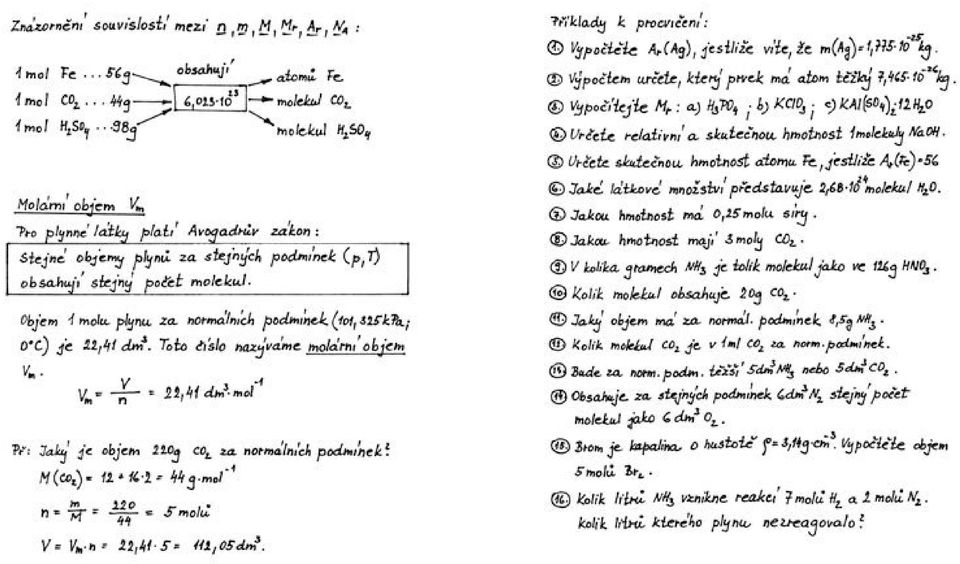 Znázornění souvislostí mezi n, m, M, Mr, Ar, NA:
1 mol Fe ... 56g
1 mol CO₂ ... 44g
1 mol H₂SO₄ ... 98g
obsahují
6,023·10²³
atomů Fe
molekul CO₂
molekul H₂SO₄
Molární objem Vm
Pro plynné látky platí Avogadrův zákon:
Stejné objemy plynů za stejných podmínek (p,T)
obsahují stejný počet molekul.
Objem 1 molu plynu za normálních podmínek (101,325kPa;
0°C) je 22,41 dm³. Toto číslo nazýváme molární objem
Vm.
Vm = V/n = 22,41 dm³·mol⁻¹
Př: Jaký je objem 220g CO₂ za normálních podmínek?
M(CO₂) = 12 + 16·2 = 44 g·mol⁻¹
n = m/M = 220/44 = 5 molů
V = Vm·n = 22,41·5 = 112,05 dm³.
Příklady k procvičení:
1. Vypočtěte Ar(Ag), jestliže víte, že m(Ag)=1,775·10⁻²⁵kg.
2. Výpočtem určete, který prvek má atom těžký 7,465·10⁻²⁶kg.
3. Vypočítejte Mr: a) H₃PO₄; b) KClO₃; c) KAl(SO₄)₂·12H₂O
4. Určete relativní a skutečnou hmotnost 1molekuly NaOH.
5. Určete skutečnou hmotnost atomu Fe, jestliže Ar(Fe)=56
6. Jaké látkové množství představuje 2,68·10²⁴molekul H₂O.
7. Jakou hmotnost má 0,25 molu síry.
8. Jakou hmotnost mají 3 moly CO₂.
9. V kolika gramech NH₃ je tolik molekul jako ve 126g HNO₃.
10. Kolik molekul obsahuje 20g CO₂.
11. Jaký objem má za normál. podmínek 8,5g NH₃.
12. Kolik molekul CO₂ je v 1ml CO₂ za norm.podmínek.
13. Bude za norm.podm. těžší 5dm³NH₃ nebo 5dm³CO₂.
14. Obsahuje za stejných podmínek 6dm³N₂ stejný počet
molekul jako 6dm³ O₂.
15. Brom je kapalina o hustotě ρ=3,14g·cm⁻³. Vypočtěte objem
5molů Br₂.
16. Kolik litrů NH₃ vznikne reakcí 7molů H₂ a 2 molů N₂.
Kolik litrů kterého plynu nezreagovalo?